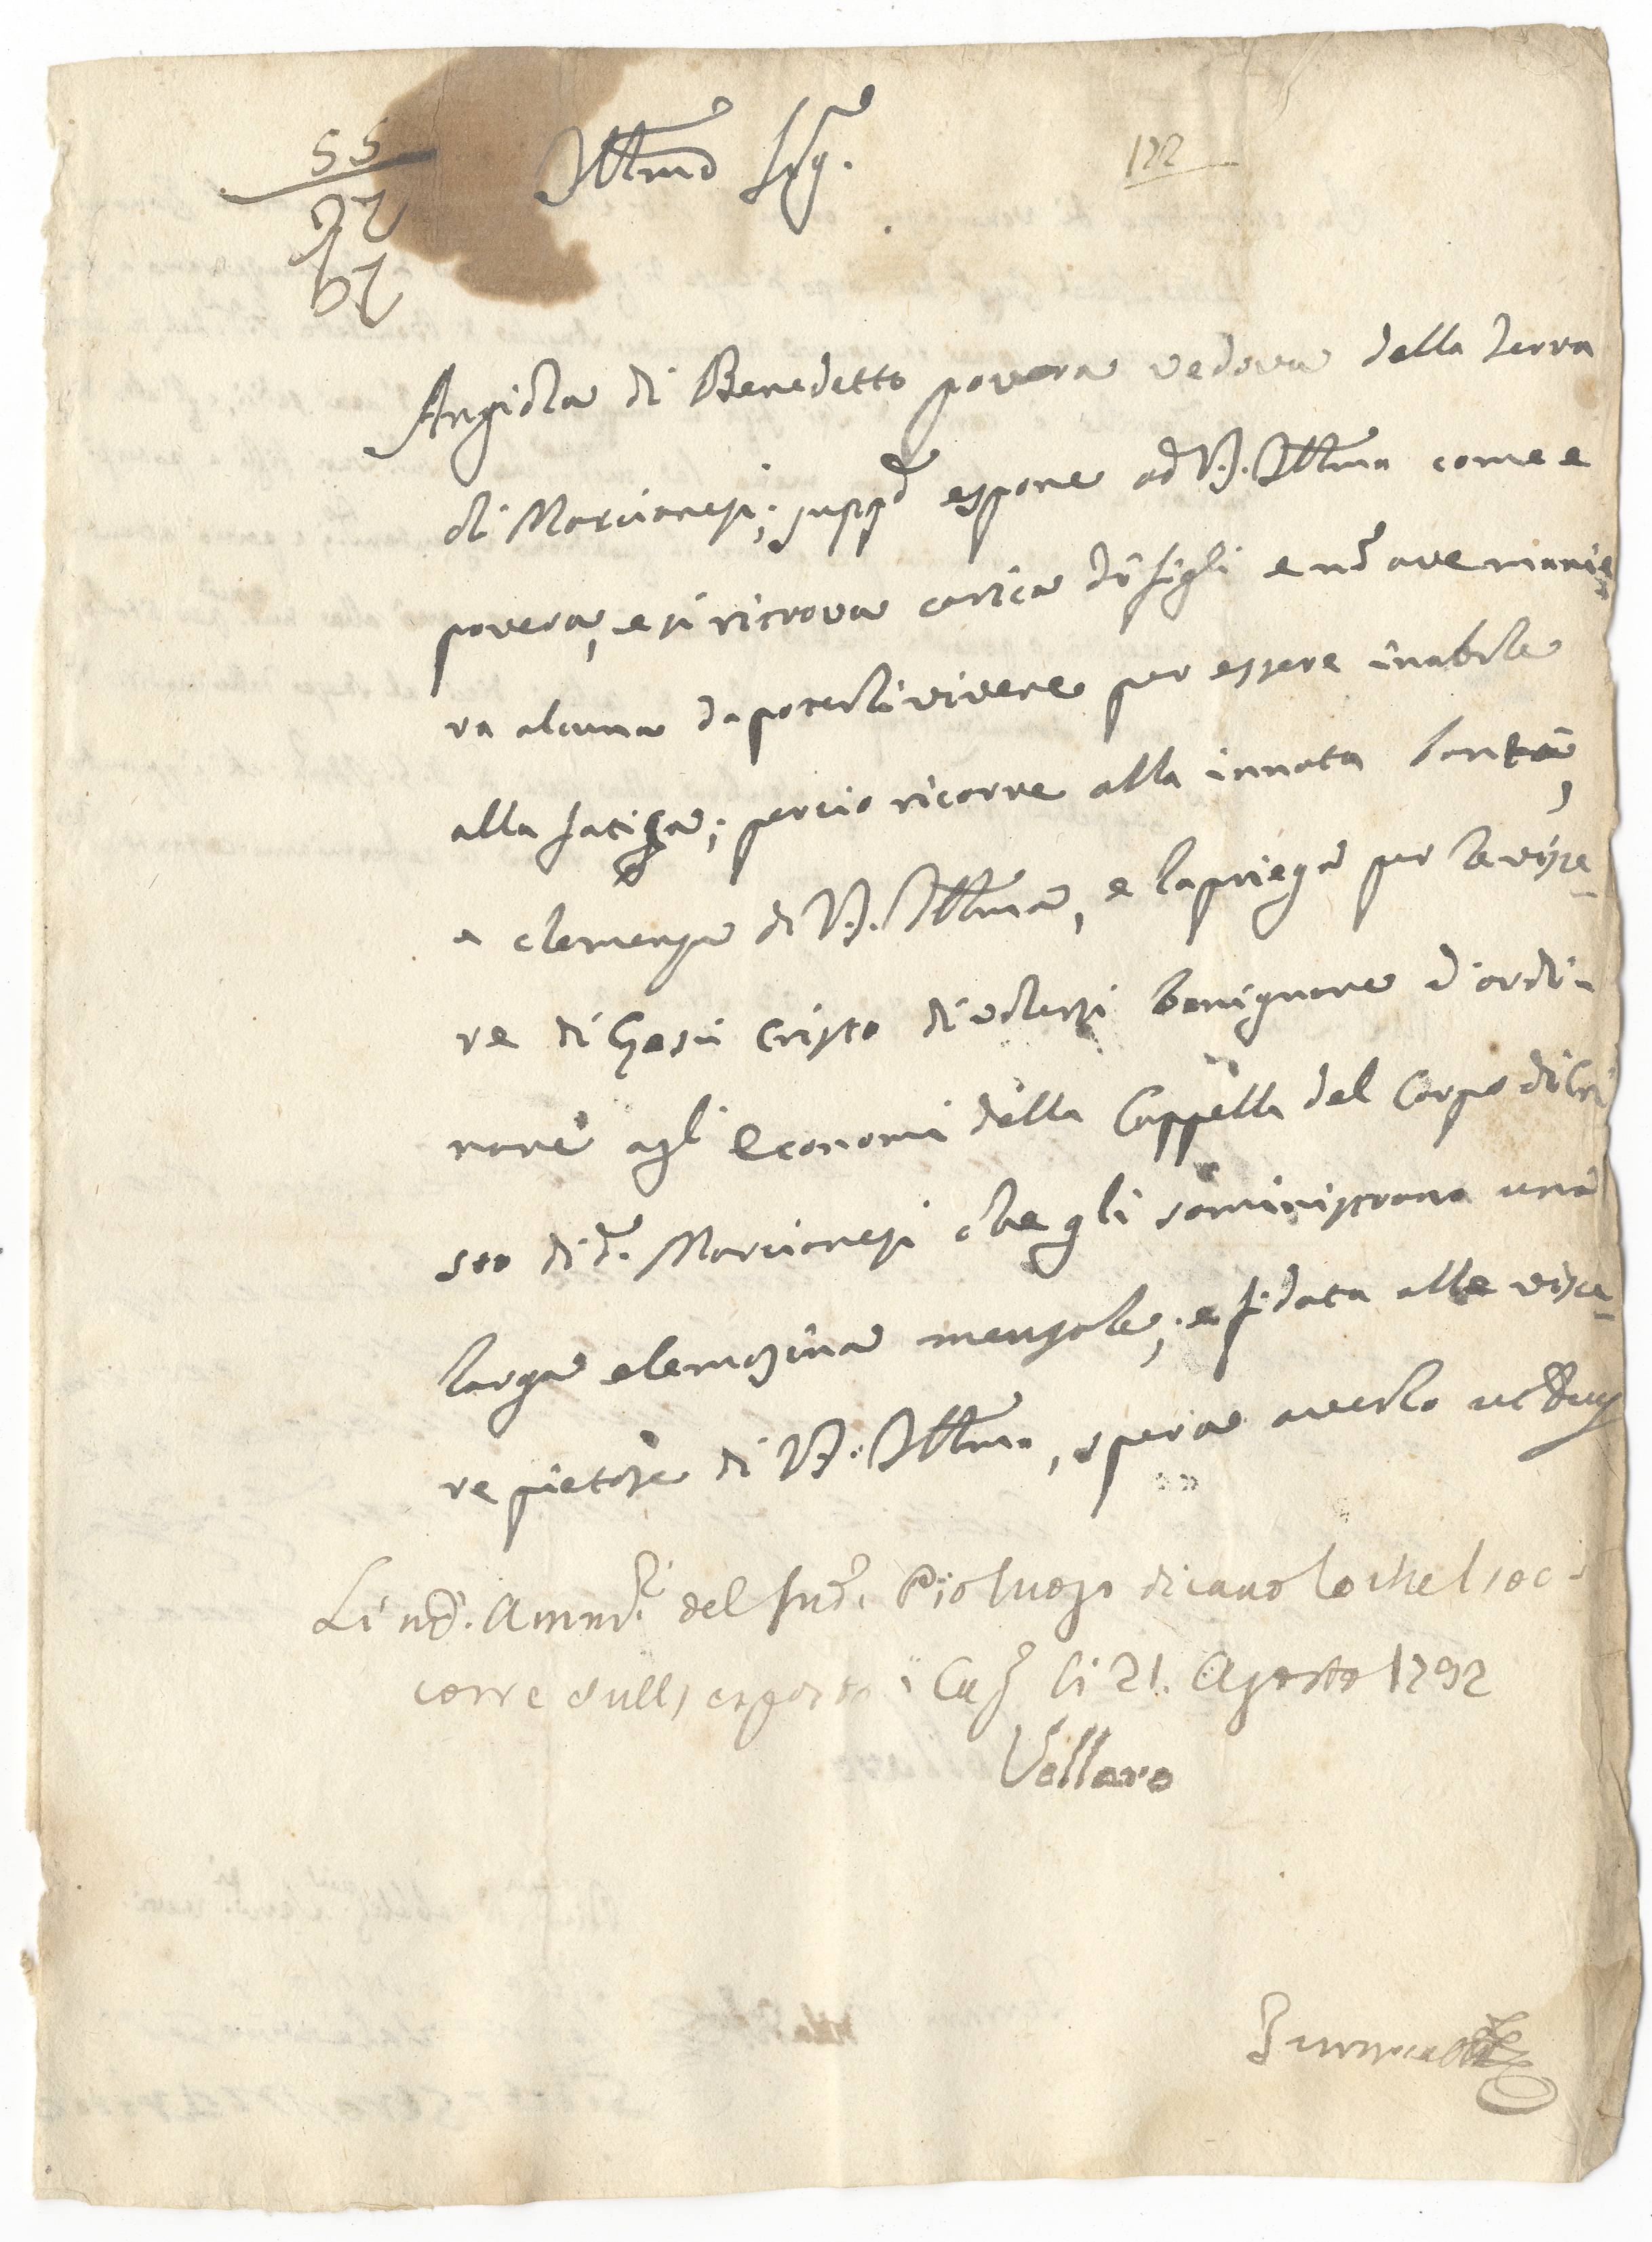 55
92
67
Illmo Sig.re
122
Angiola di Benedetto povera vedova della terra
di Marcianesi; supp.do espone ad V.S. Illma come e
povera, e si ritrova carica di figli e nō ave manie
ra alcuna da poterli vivere per essere inabile
alla fatiga; percio ricorre alla innata bontà,
e clemenza di V.S. Illma, e la priega per le visce
re di Giesù Cristo di volersi benignare d'ordi-
nare agl'Economi della Cappella del Corpo di Cri
sto di d.o Marcianesi che gli somministrano una
larga elemosina mensale; e fidata alle visce
re pietose di V.S. Illma, spera averlo ut Deus
Li Amm.ri del sud.o Pio luogo dicano lo che l'oc-
corre sull'esposto Cap.a li 21. Agosto 1792
Vollaro